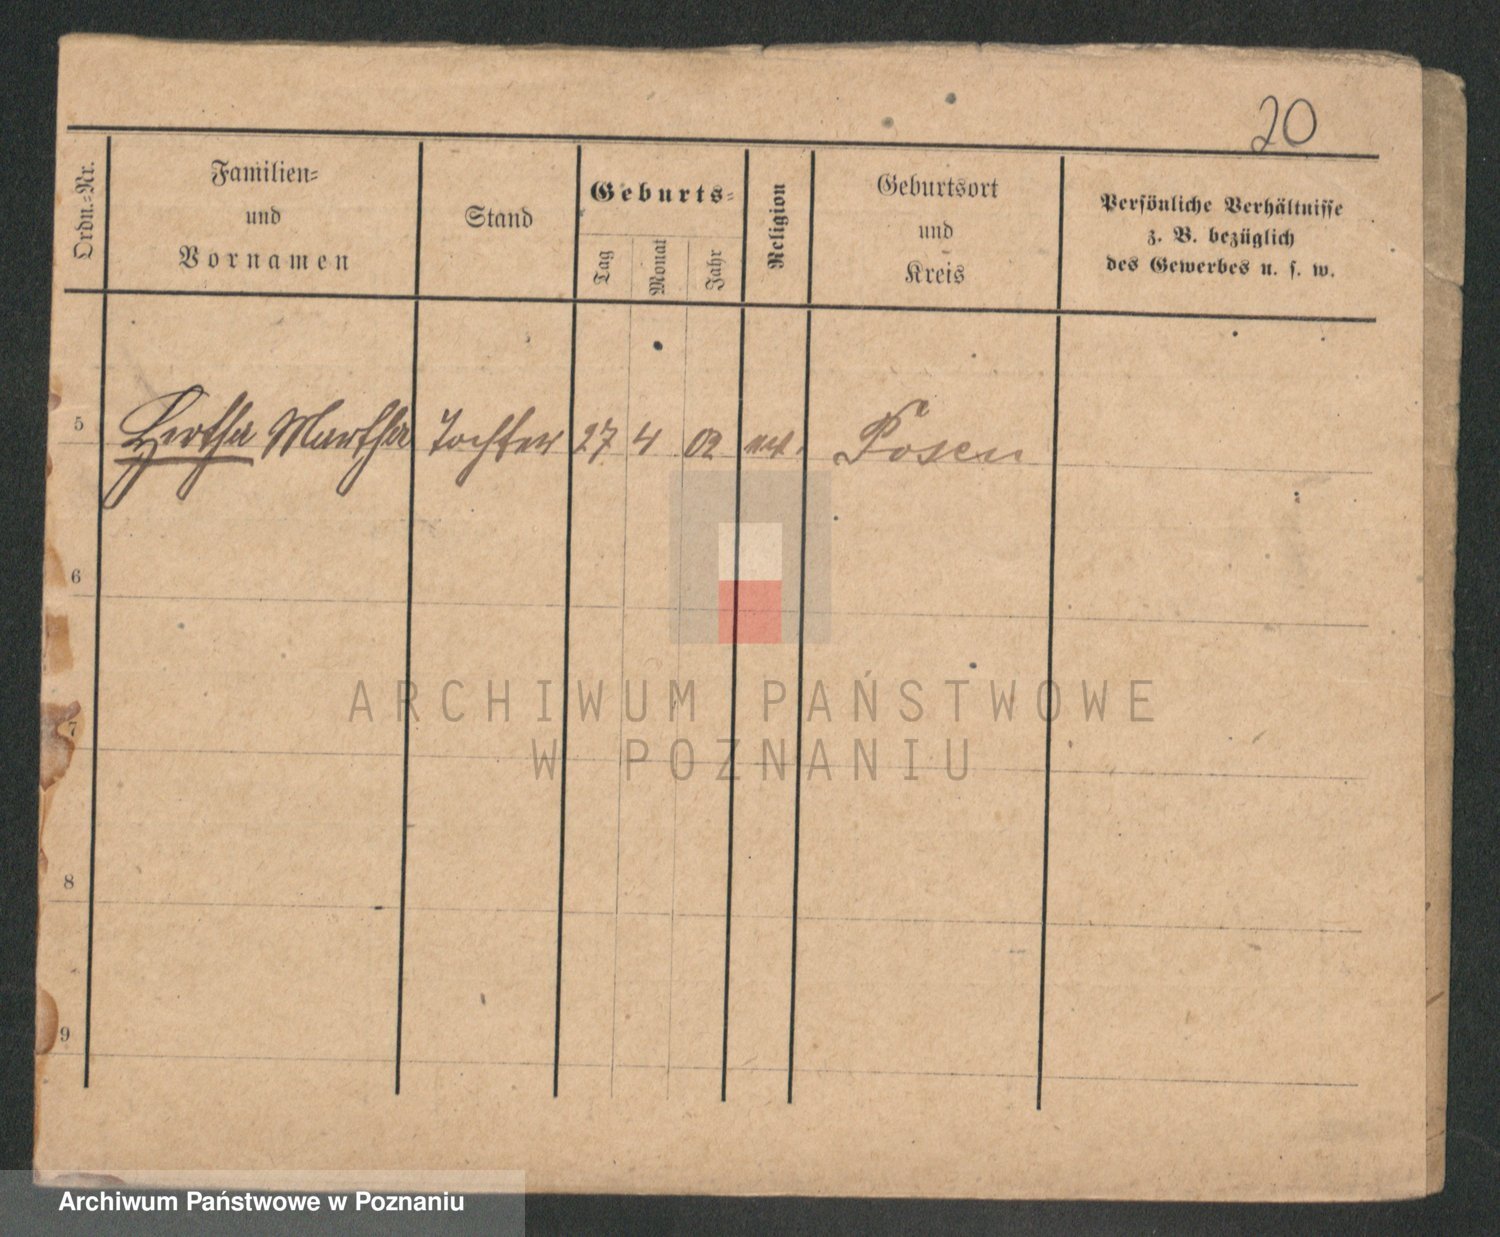 20
Ordn.-Nr.
Familien-
und
Vornamen
Stand
Geburts-
Tag
Monat
Jahr
Religion
Geburtsort
und
Kreis
Persönliche Verhältnisse
z. B. bezüglich
des Gewerbes u. s. w.
5 Hertha Martha Tochter 27 4 02 ev. Posen
6
7
8
9
ARCHIWUM PAŃSTWOWE
W POZNANIU
Archiwum Państwowe w Poznaniu